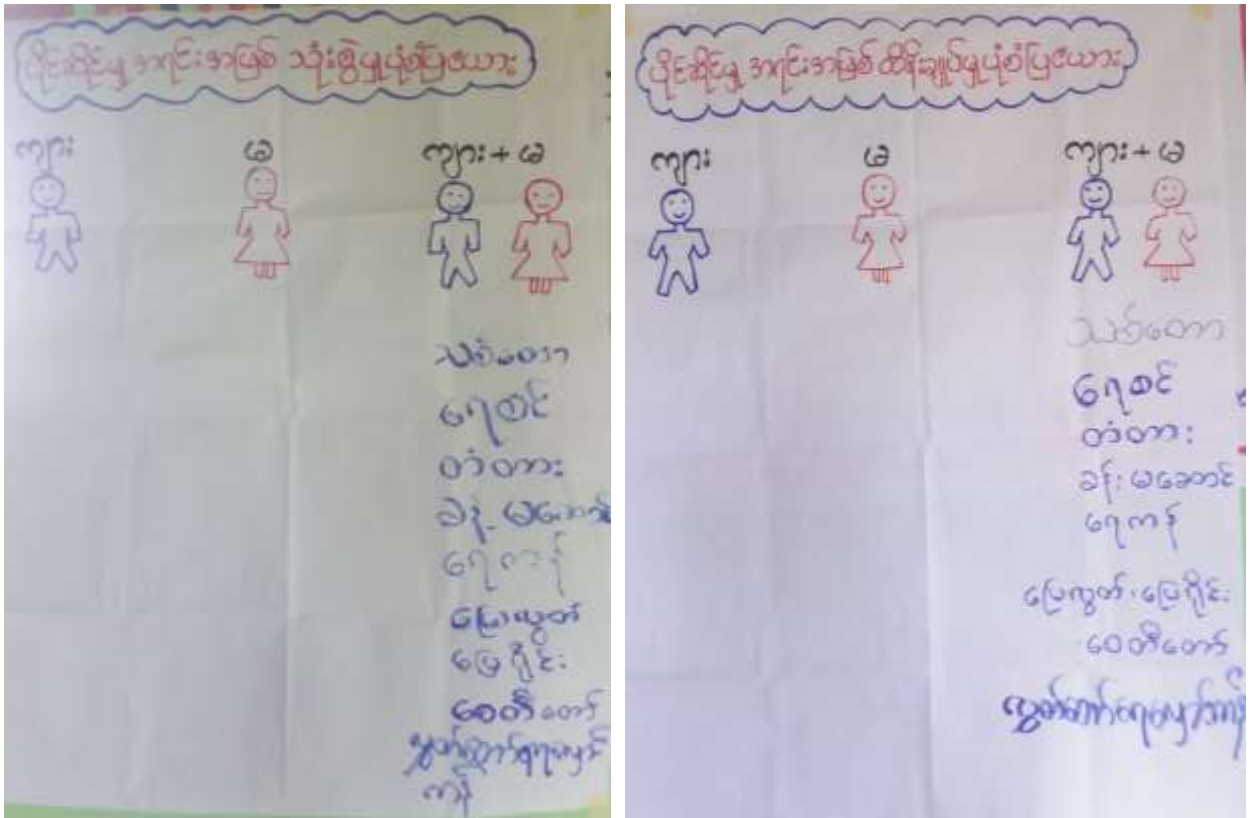 ပိုင်ဆိုင်မှု အရင်းအမြစ် သုံးစွဲမှုပုံစံပြဇယား
ကျား
မ
ကျား + မ
သစ်တော
ရေစင်
တံတား
ခန်းမဆောင်
ရေကန်
မြေလွတ်
မြေရိုင်း
စေတီတော်
လွတ်
ကန်
ပိုင်ဆိုင်မှု အရင်းအမြစ် ထိန်းချုပ်မှုပုံစံပြဇယား
ကျား
မ
ကျား + မ
သစ်တော
ရေစင်
တံတား
ခန်းမဆောင်
ရေကန်
မြေလွတ်၊ မြေရိုင်း
စေတီတော်